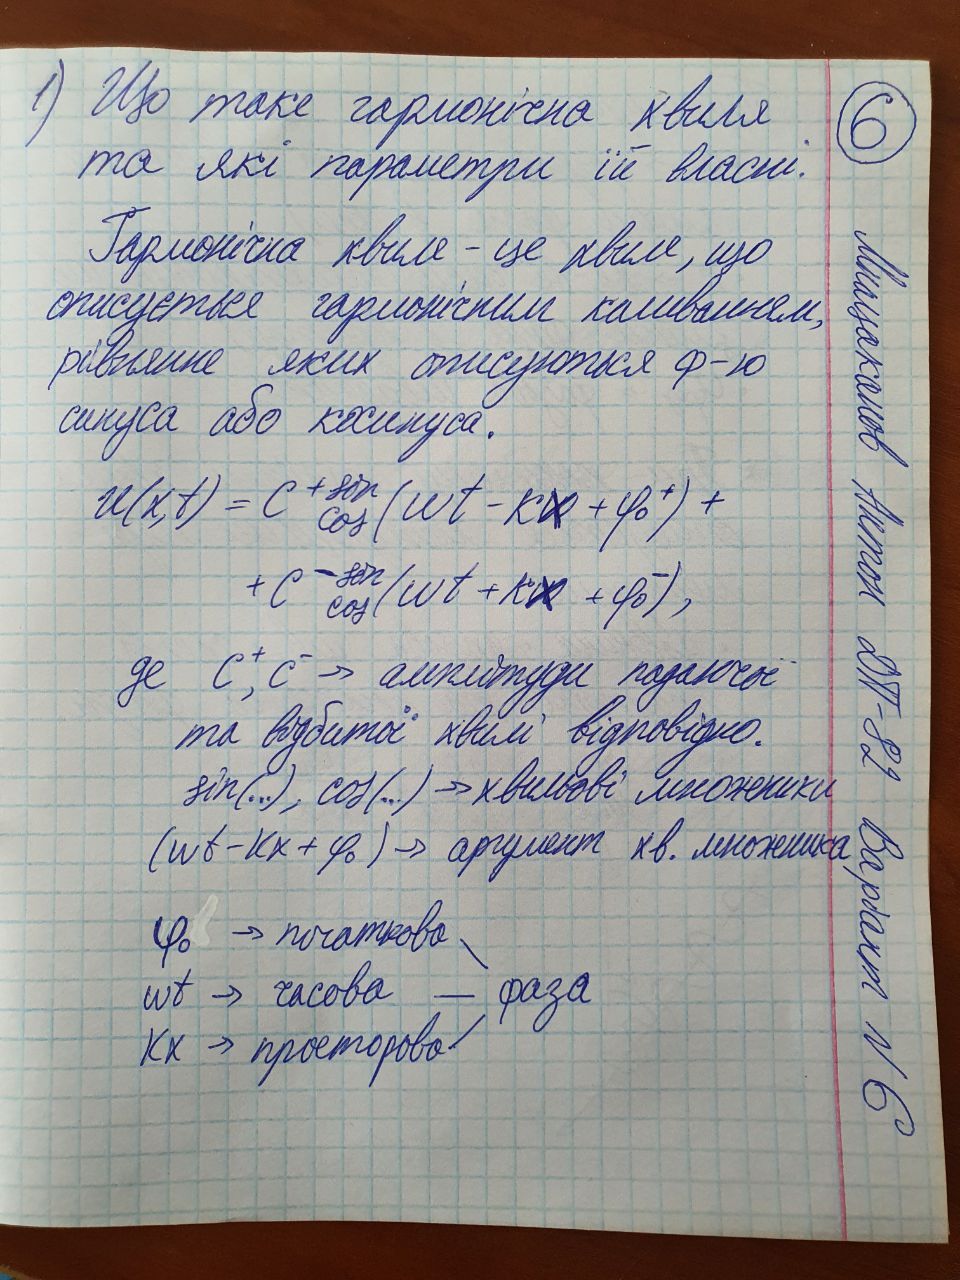 1) Що таке гармонічна хвиля
та які параметри їй власні.
Гармонічна хвиля - це хвиля, що
описується гармонічним коливанням,
рівняння яких описуються ф-ю
синуса або косинуса.
u(x,t) = C⁺ sin cos (ωt - kx + φ₀⁺) +
+ C⁻ sin cos (ωt + kx + φ₀⁻),
де C⁺, C⁻ → амплітуди падаючої
та відбитої хвилі відповідно.
sin(...), cos(...) → хвильові множники
(ωt - kx + φ₀) → аргумент хв. множника
φ₀ → початкова
ωt → часова — фаза
kx → просторова
6
Мнацаканов Антон ДП-82 Варіант N 6